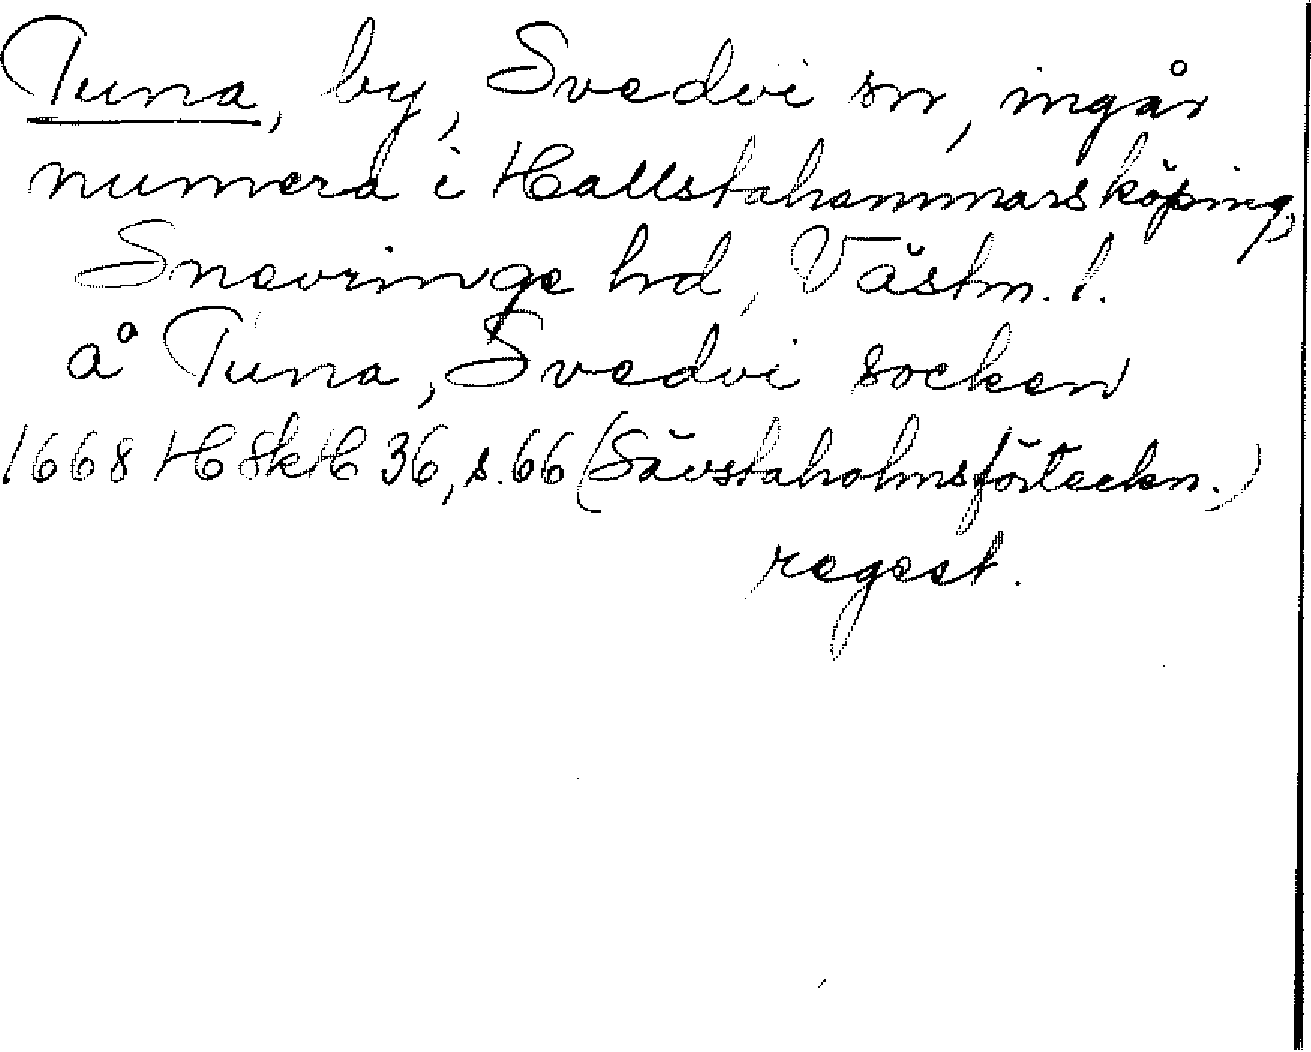 Tuna, by, Svedvi sn, ingår
numera i Hallstahammars köping,
Snevringe hd, Västm. l.
å Tuna, Svedvi socken
1668 HSkH 36, s. 66 (Sävstaholmsförteckn.)
regest.